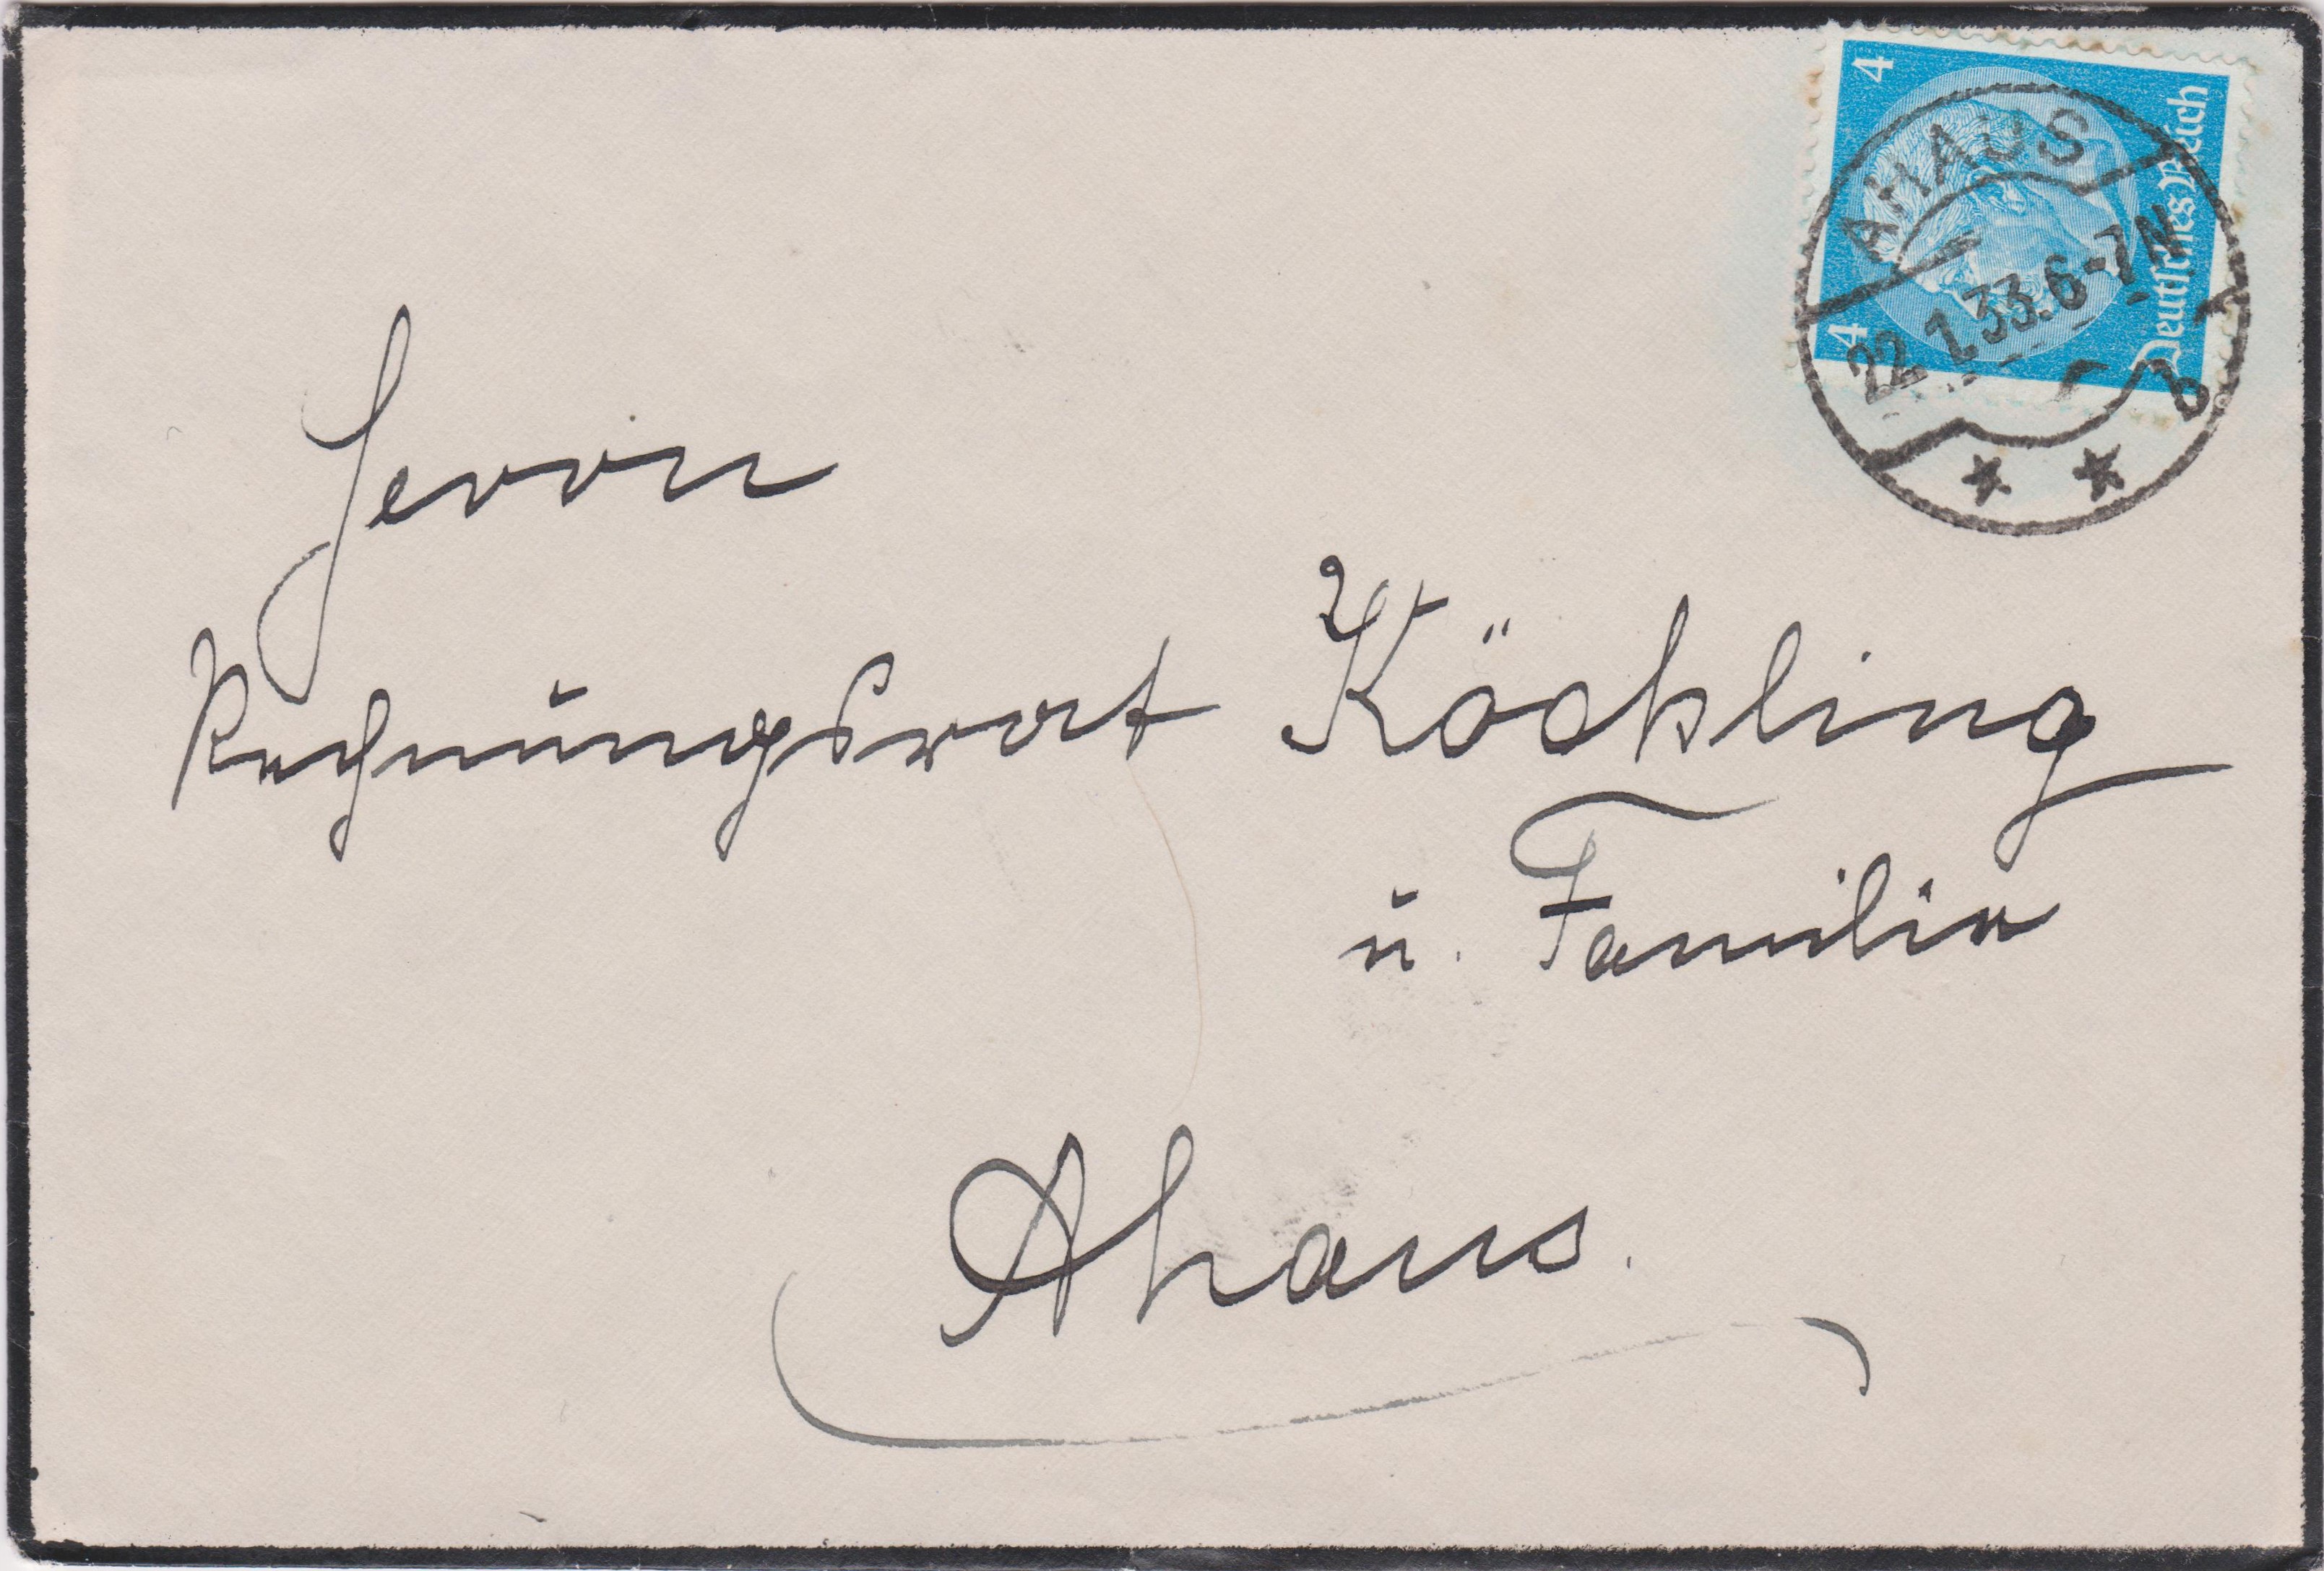 4 4
Deutsches Reich
AHAUS
22.1.33.6-7N
b
* *
Herrn
Rechnungsrat Köckling
u. Familie
Ahaus.